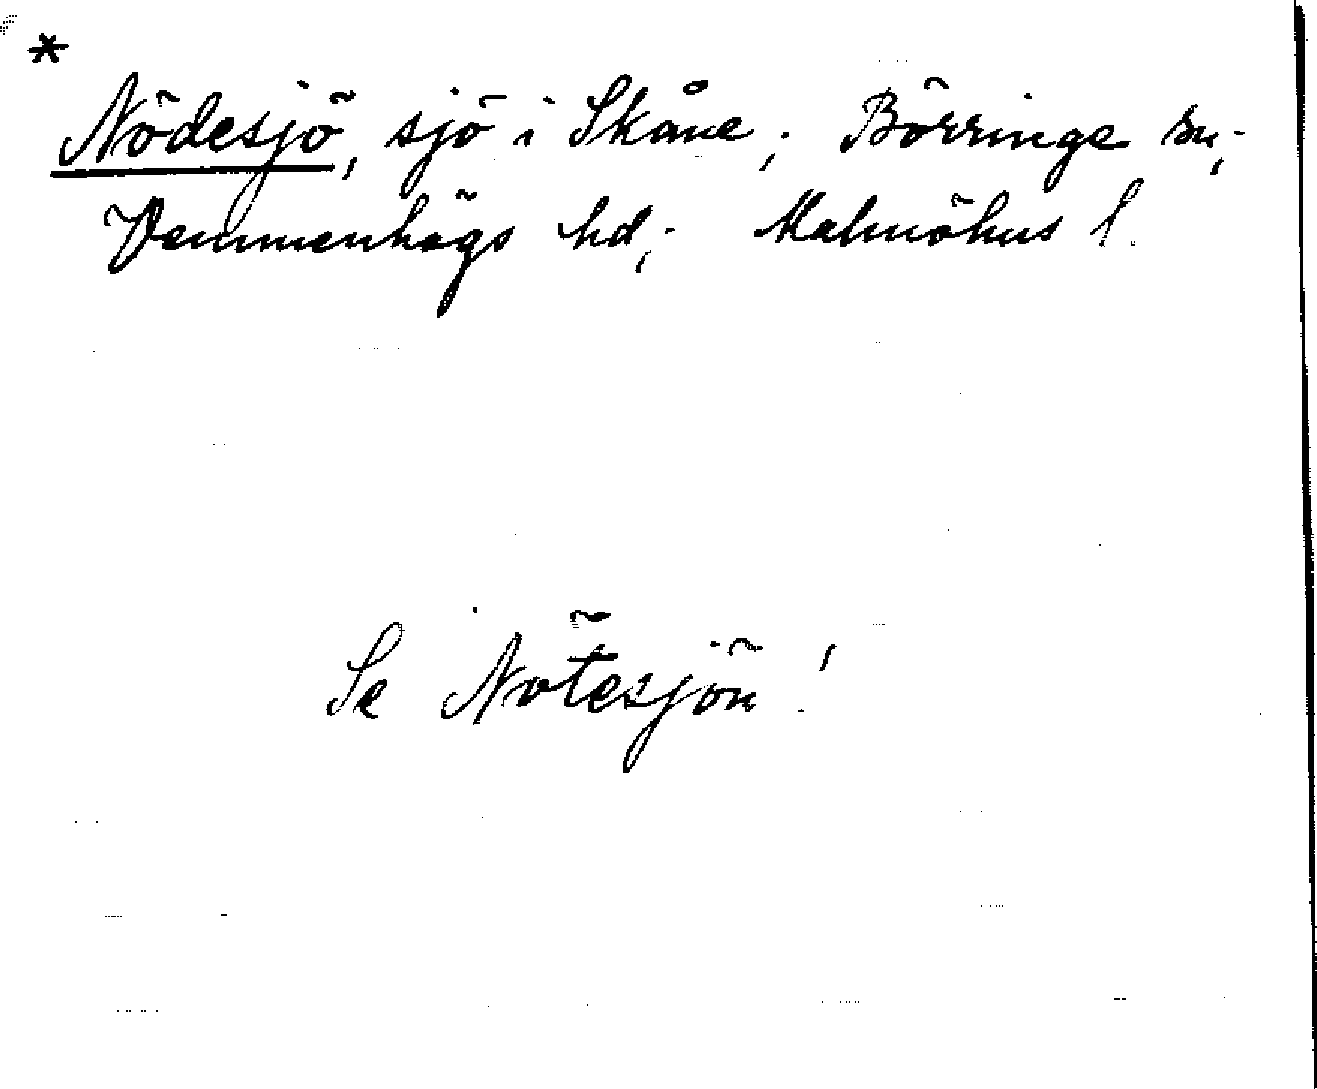 *
Nödesjö, sjö i Skåne; Börringe sn;
Vemmenhögs hd; Malmöhus l.
Se Nötesjön!